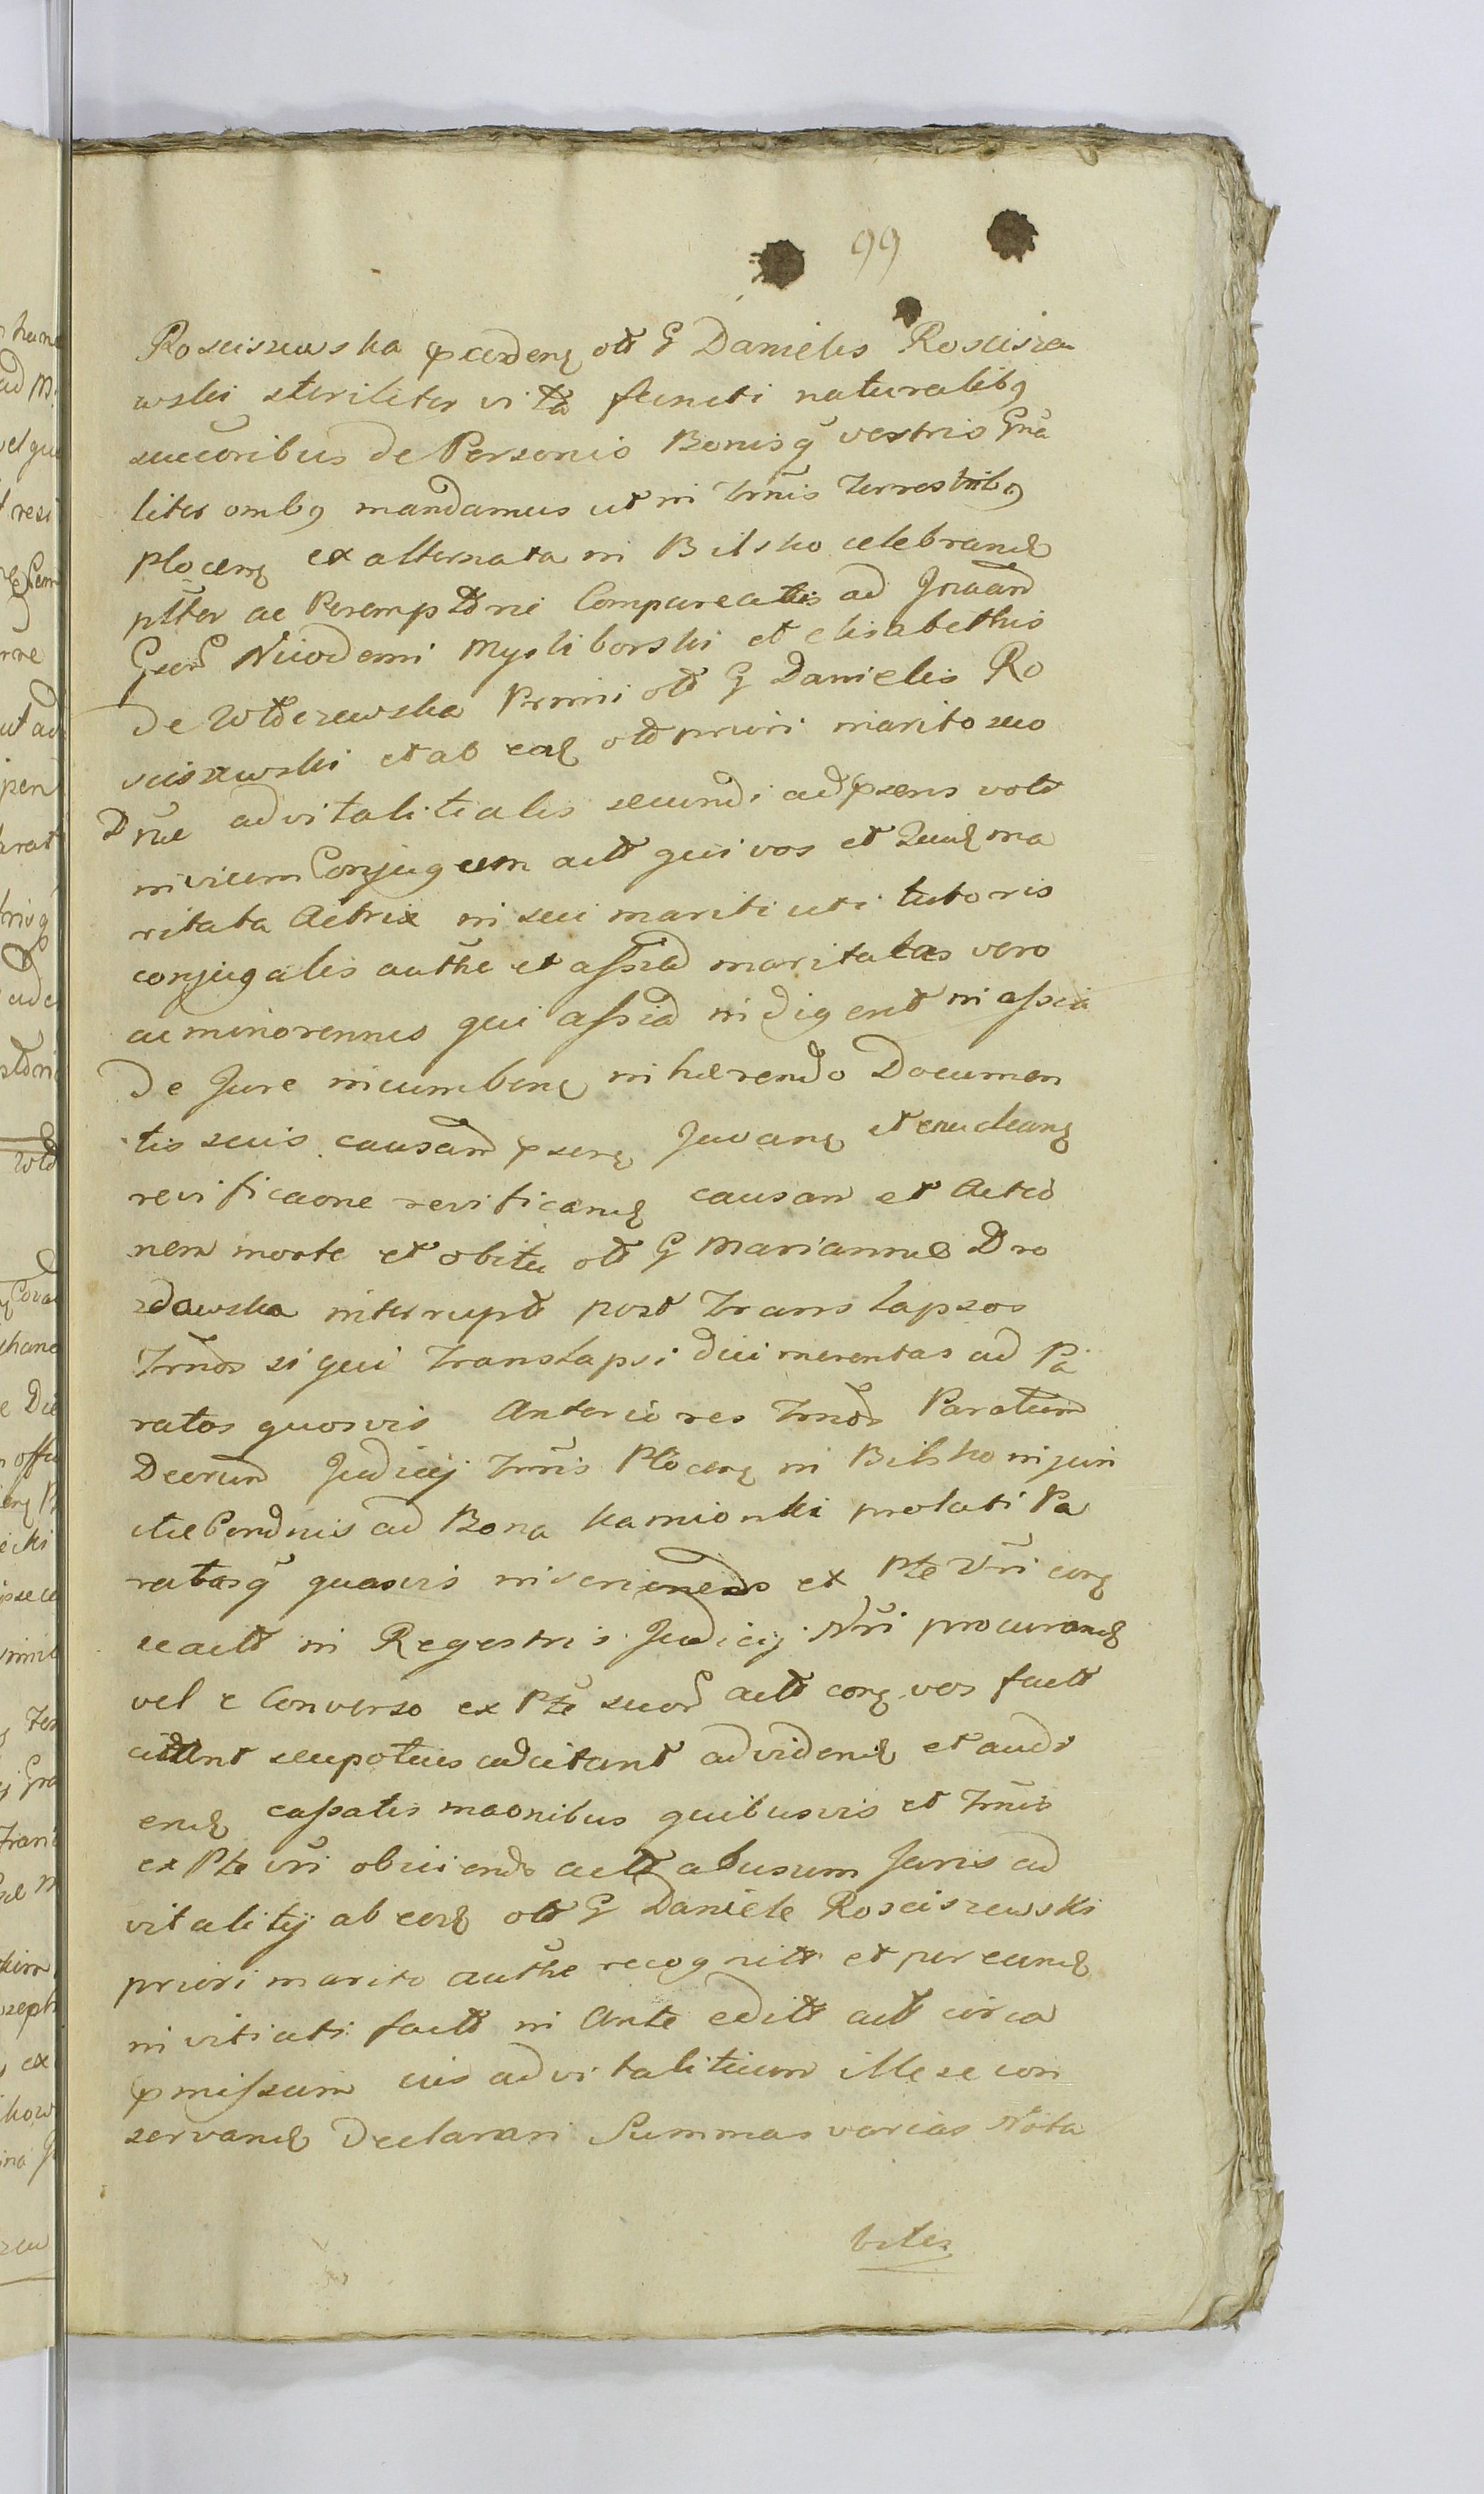 99
Rosciszewska pcedenꝫ olt G Danielis Roscisze
wski steriliter vita functi naturalibꝯ
successoribus de Personis Bonisq̃ vestris Gña
liter ombꝯ mandamus ut in Trmis Terrestribꝯ
Plocenꝫ ex alternata in Bilsko celebrandꝫ
pltter ac Peremptorie Compareatis ad Jnaam
Gsor Nicodemi Mysliborski et Elisabethis
de Wlderewska Primi olt G Danielis Ro
sciszewski et ab eodꝫ olt priori marito suo
Dñae advitalitialis secundi ad psens votd
invicem Conjugum actt qui vos et Quidꝫ ma
ritata Actrix in sui mariti uti tutoris
conjugalis authe et assia maritatas vero
ac minorennes qui assia indigent in assia
de Jure incumbenꝫ inhærendo Documen
tis suis causam psenꝫ Juvanꝫ et enucleanꝫ
revificaone revificandꝫ causam et Actio
nem morte et obitu olt G Mariannæ Dro
zdowska interrupt post Translapsos
Trmos si qui Translapsi dici merentas ad Pa
ratos quosvis Anteriores Trmos Paratum
Decrum Judicij Trmis Plocenꝫ in Bilsko in juri
ctie Condnis ad Bona Kamionki prolati Pa
ratasq̃ quasvis inveniendas ex Pte Vri conꝫ
seactt in Regestris Judicij Nri procurandꝫ
vel e Converso ex Pte suor actt conꝫ vos factt
citant seu potius adcitant ad videndꝫ et audi
endꝫ cassatis maonibus quibusvis et Trmis
ex Pte vri obiiciendo actt abusum Juris ad
vitalitij ab eodꝫ olt G Daniele Rosciszewski
priori marito authe recognitt et per eundꝫ
invitiati factt in Ante editt actt circa
pmissum eius advitalitium illese con
servandꝫ Declarari Summas varias Nota
biles